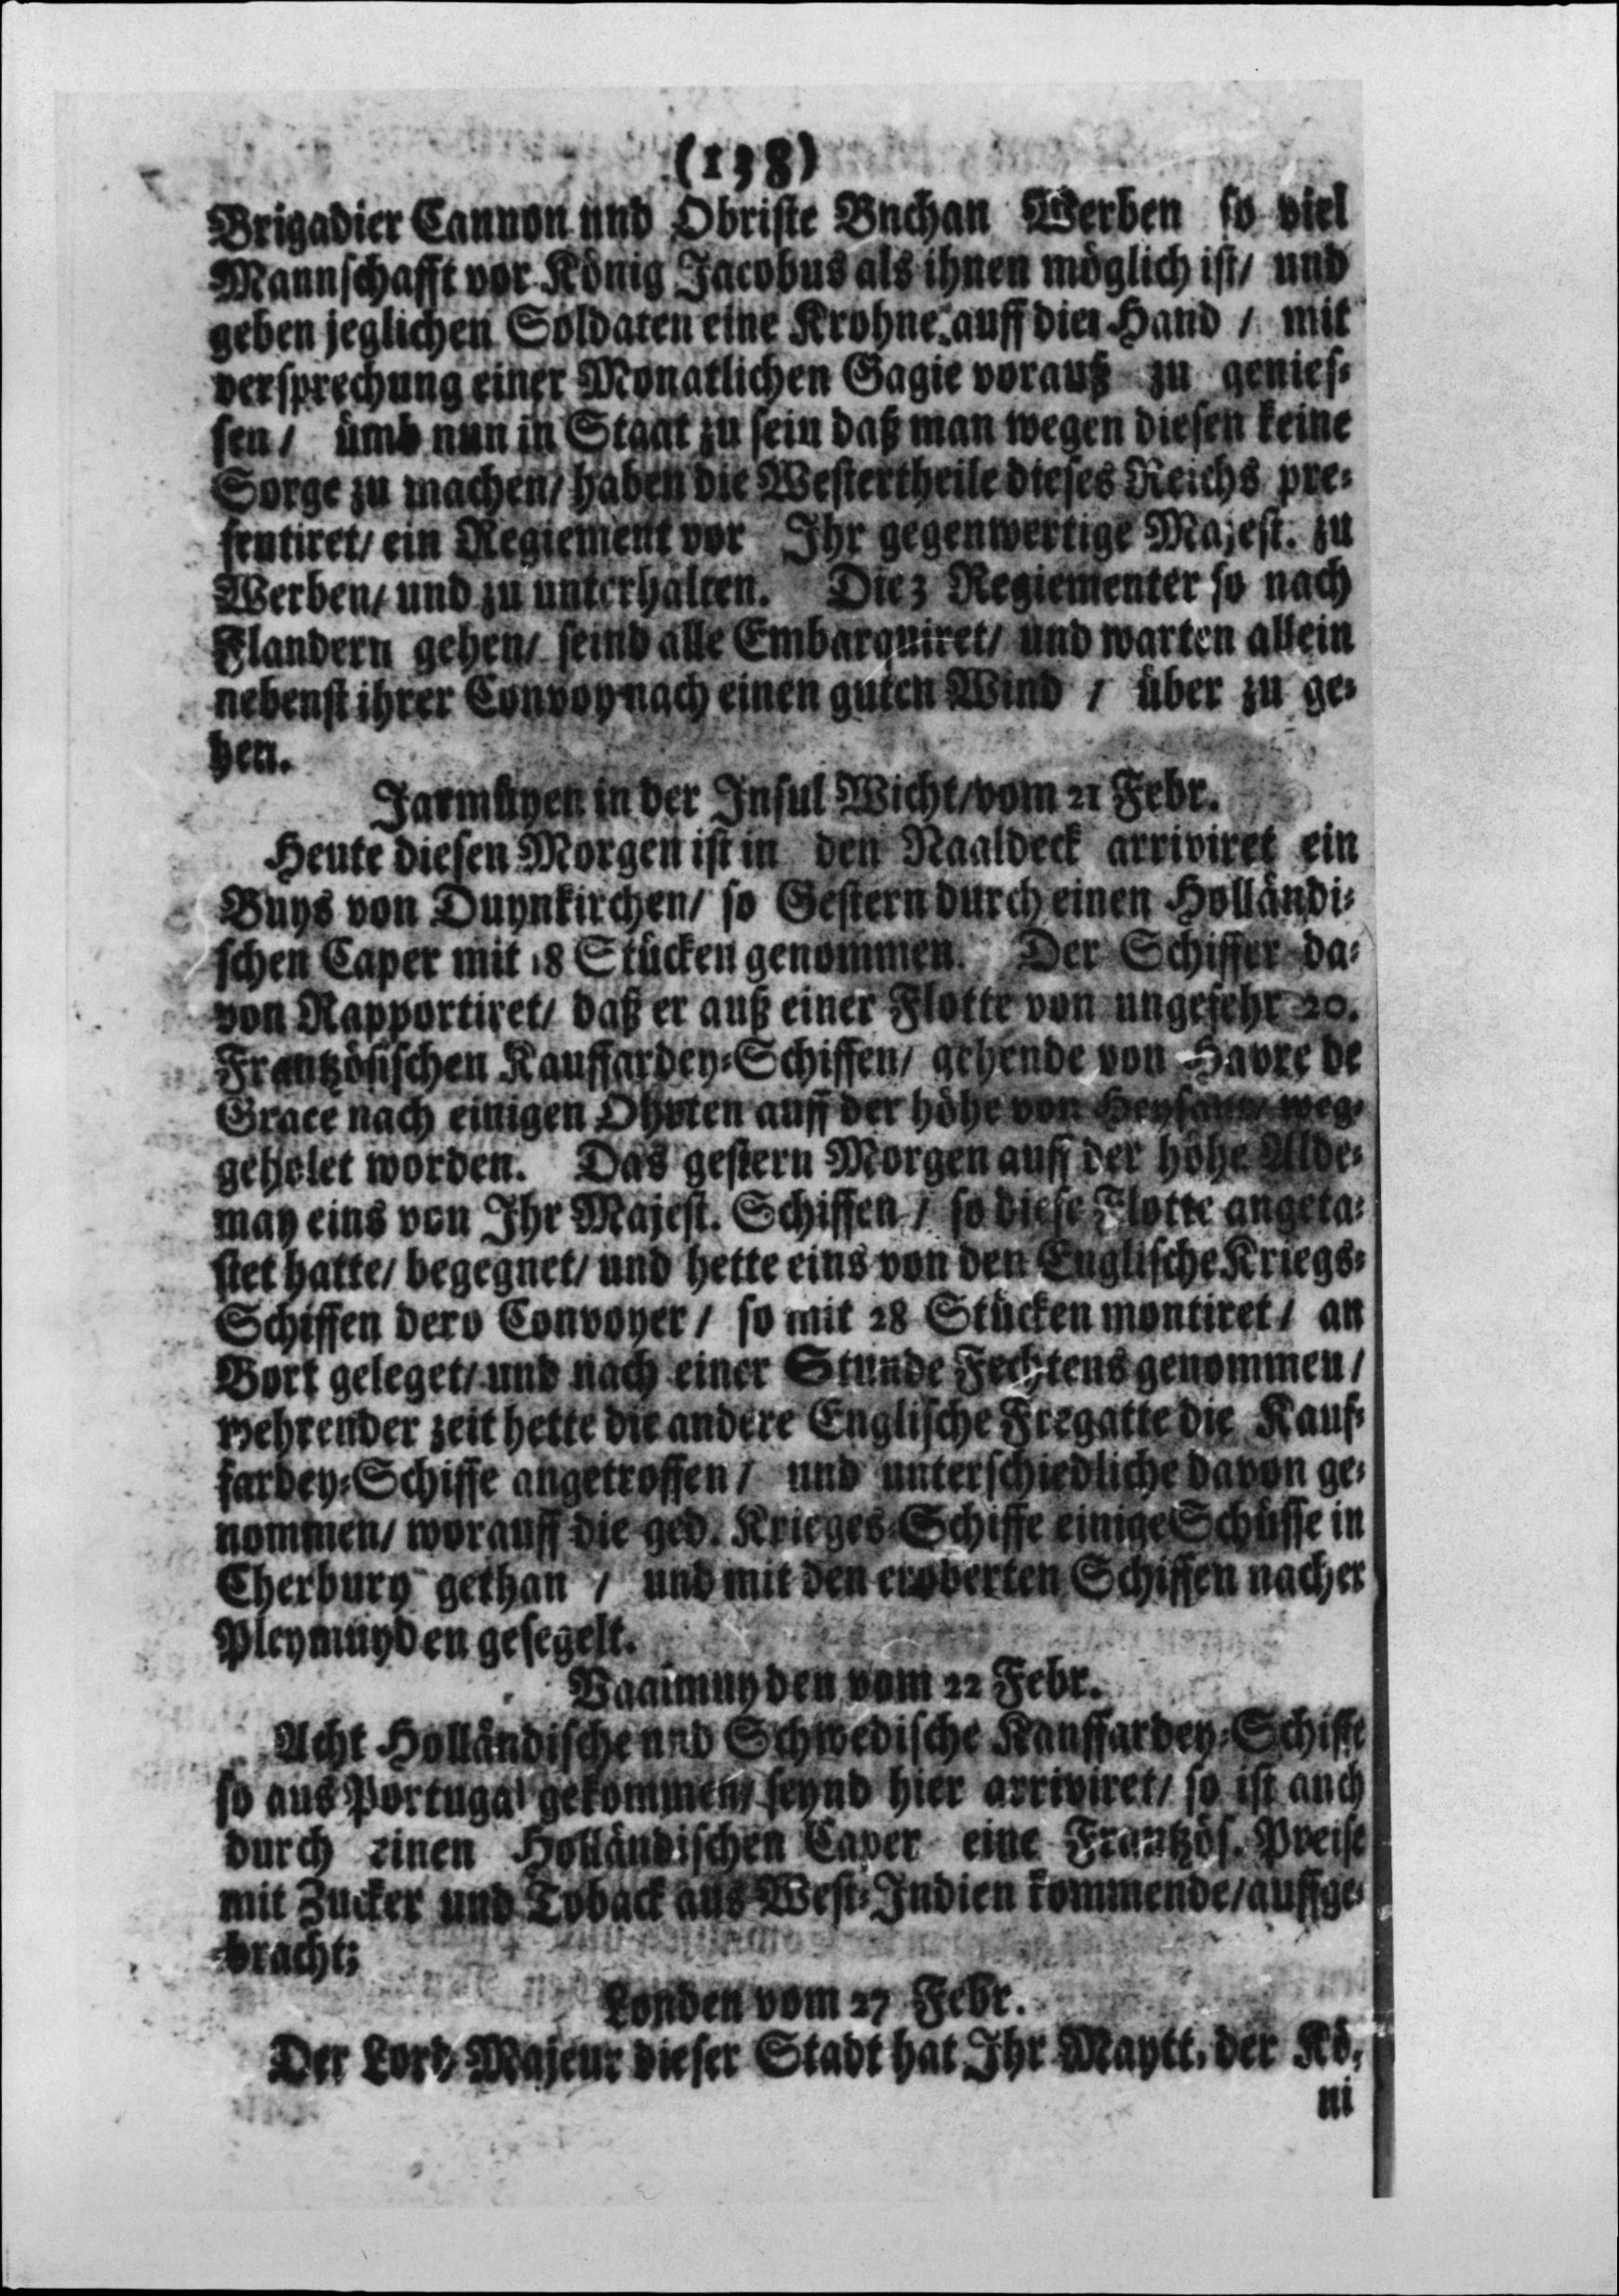 (138)
Brigadier Cannon und Obriste Buchan Werben so viel
Mannschafft vor König Jacobus als ihnen möglich ist/ und
geben jeglichen Soldaten eine Krohne auff die Hand / mit
versprechung einer Monatlichen Gagie vorauß zu genies-
sen / ümb nun in Staat zu sein daß man wegen diesen keine
Sorge zu machen/ haben die Westertheile dieses Reichs pre-
sentiret/ ein Regiement vor Ihr gegenwertige Majest. zu
Werben/ und zu unterhalten. Die 3 Regiementer so nach
Flandern gehen/ seind alle Embarquiret/ und warten allein
nebenst ihrer Convoy nach einen guten Wind / über zu ge-
hen.
Jarmuyen in der Insul Wicht/ vom 21 Febr.
Heute diesen Morgen ist in den Naaldeck arriviret ein
Buys von Duynkirchen/ so Gestern durch einen Holländi-
schen Caper mit 18 Stücken genommen. Der Schiffer da-
von Rapportiret/ daß er auß einer Flotte von ungefehr 20.
Frantzösischen Kauffardey-Schiffen/ gehende von Havre de
Grace nach einigen Ohrten auff der höhe von weg-
geholet worden. Das gestern Morgen auff der höhe Alde-
may eins von Ihr Majest. Schiffen / so diese Flotte angeta-
stet hatte/ begegnet/ und hette eins von den Englische Kriegs-
Schiffen dero Convoyer / so mit 28 Stücken montiret / an
Bort geleget/ und nach einer Stunde Fechtens genommen /
wehrender zeit hette die andere Englische Fregatte die Kauf-
fardey-Schiffe angetroffen / und unterschiedliche davon ge-
nommen/ worauff die ged. Krieges-Schiffe einige Schüsse in
Cherbury gethan / und mit den eroberten Schiffen nacher
Pleymuyden gesegelt.
Vaaimuyden vom 22 Febr.
Acht Holländische und Schwedische Kauffardey-Schiffe
so aus Portugal gekommen/ seynd hier arriviret/ so ist auch
durch einen Holländischen Caper eine Frantzös. Preise
mit Zucker und Toback aus West-Indien kommende/ auffge-
bracht;
Londen vom 27 Febr.
Der Lord Majeur dieser Stadt hat Ihr Maytt. der Kö-
ni